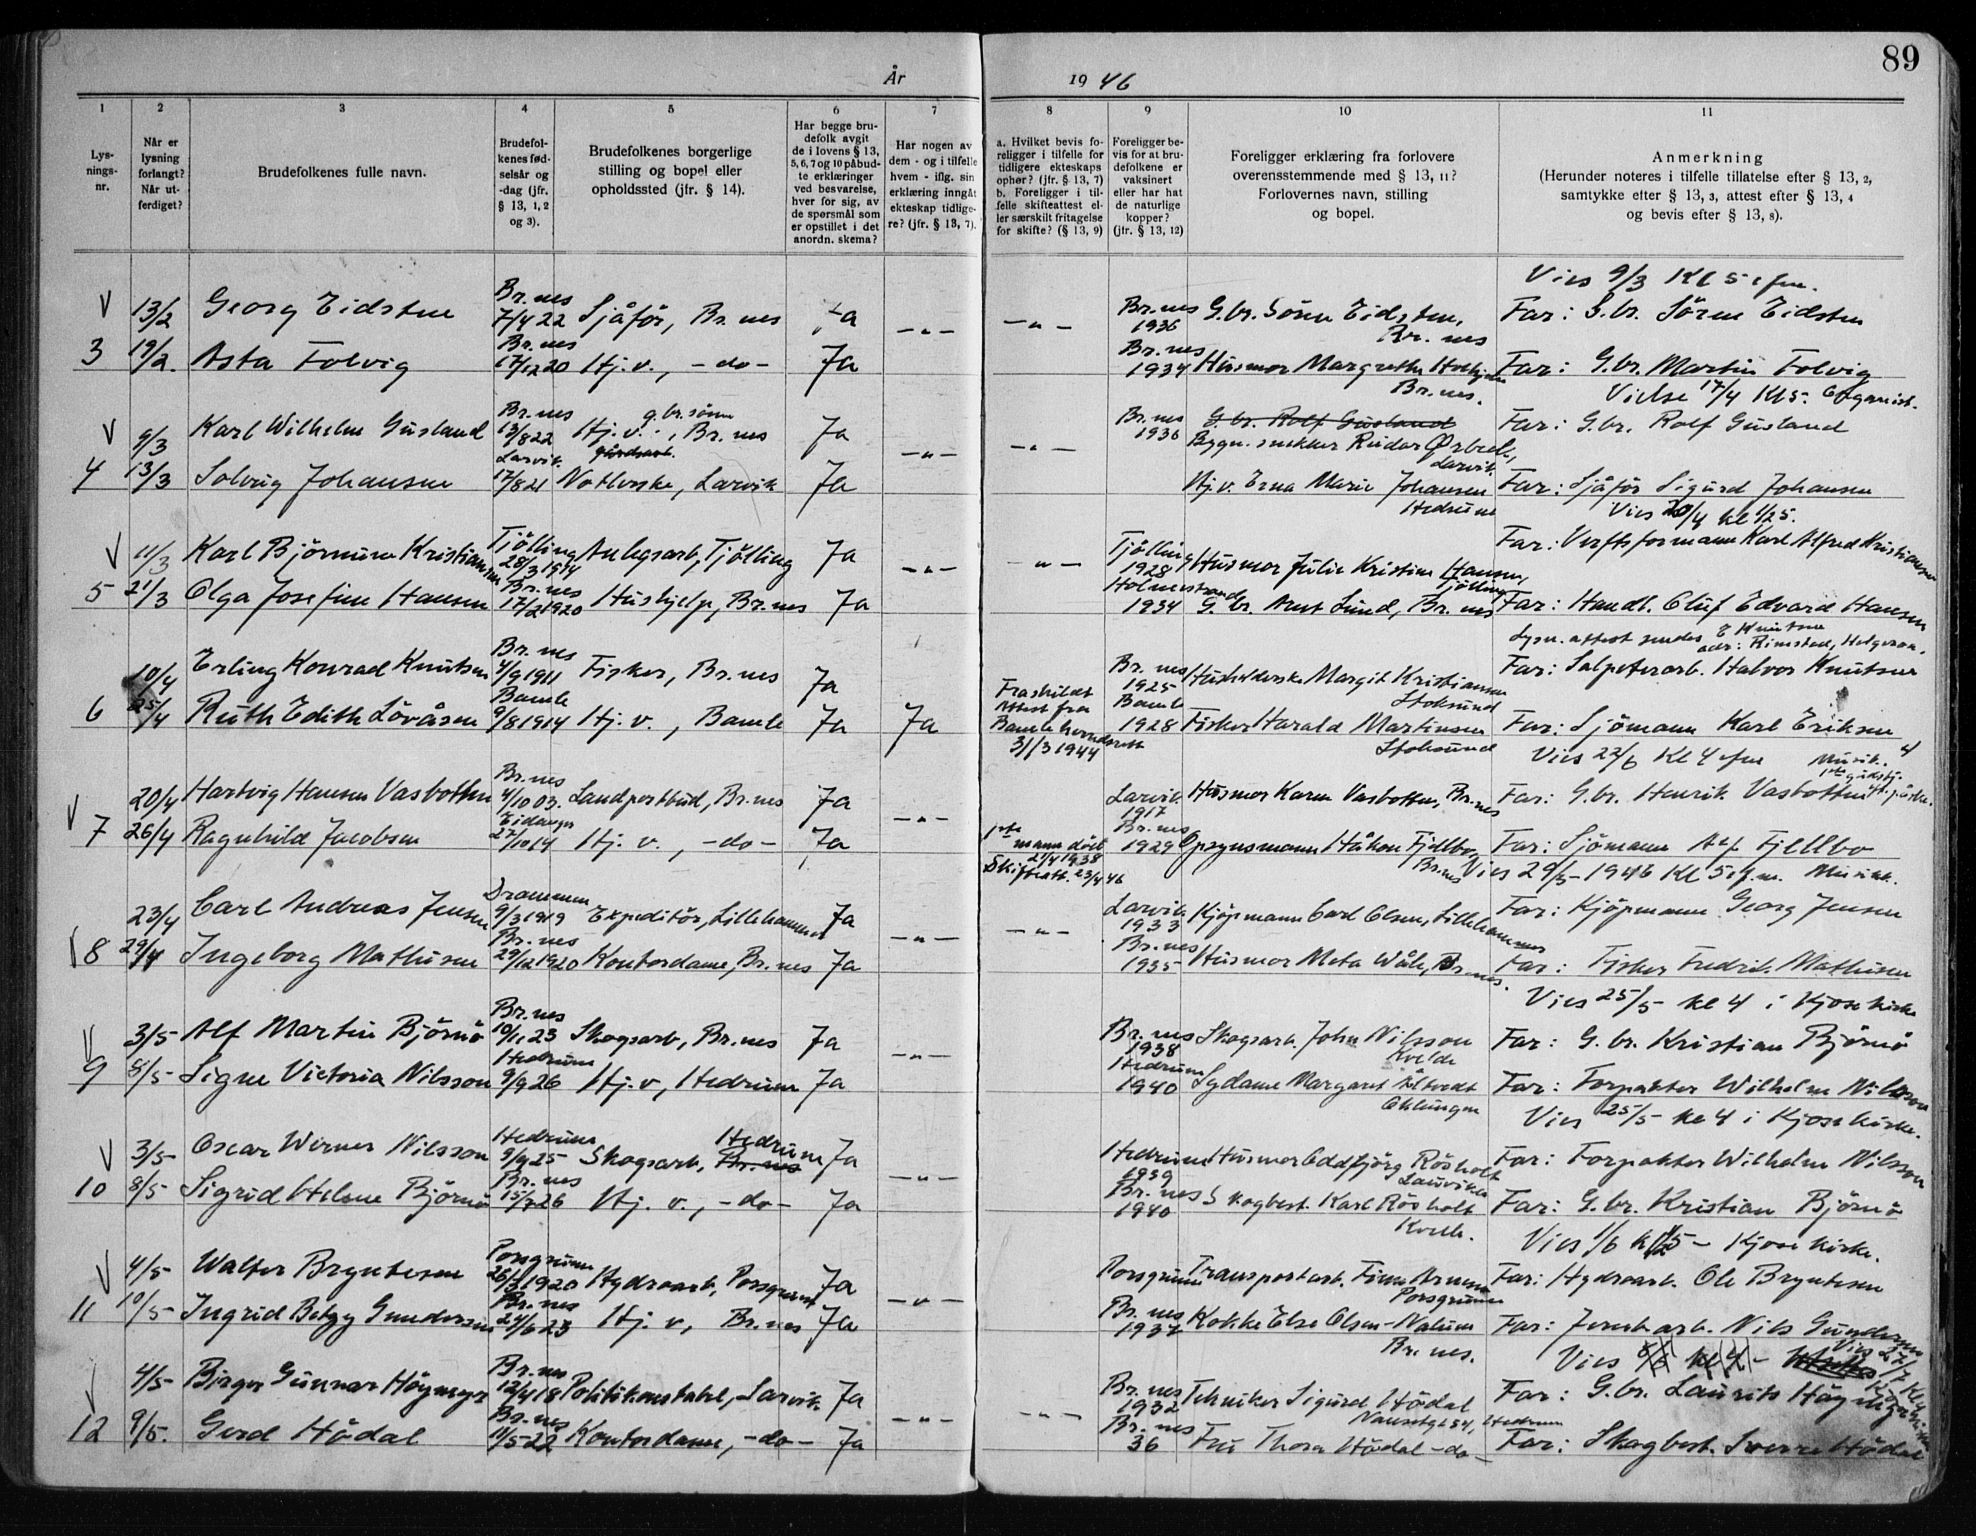 89
År 1946
1 2 3 4 5 6 7 8 9 10 11
Lysnings-nr.
Når er lysning forlangt? Når utferdiget?
Brudefolkenes fulle navn.
Brudefolkenes fødselsår og -dag (jfr. § 13, 1, 2 og 3).
Brudefolkenes borgerlige stilling og bopel eller opholdssted (jfr. § 14).
Har begge brudefolk avgit de i lovens § 13, 5, 6, 7 og 10 påbudte erklæringer ved besvarelse, hver for sig, av de spørsmål som er opstillet i det anordn. skema?
Har nogen av dem - og i tilfelle hvem - iflg. sin erklæring inngåt ekteskap tidligere? (jfr. § 13, 7).
a. Hvilket bevis foreligger i tilfelle for tidligere ekteskaps ophør? (jfr. § 13, 7) b. Foreligger i tilfelle skifteattest eller særskilt fritagelse for skifte? (§ 13, 9)
Foreligger bevis for at brudefolkene er vaksinert eller har hat de naturlige kopper? (jfr. § 13, 12)
Foreligger erklæring fra forlovere overensstemmende med § 13, 11? Forlovernes navn, stilling og bopel.
Anmerkning (Herunder noteres i tilfelle tillatelse efter § 13, 2, samtykke efter § 13, 3, attest efter § 13, 4 og bevis efter § 13, 8).
Vies 9/3 Kl 5 efm.
V 13/2 Georg Eidsten Br.nes 7/4 22 Sjåfør, Br.nes Ja -"- -"- Br.nes 1936 G.br. Sønn Eidsten, Br.nes Far: G.br. Søren Eidsten
3 19/2. Asta Folvig Br.nes 17/12 20 Hj.v., -do- Ja Br.nes 1934 Husmor Margrethe Br.nes. Far: G.br. Martin Folvig
Vielse 17/4 Kl 5. Organist.
V 9/3 Karl Wilhelm Gusland Br.nes 13/8 22 g.br.sønn Hj.v., Br.nes Ja -"- -"- Br.nes 1936 G.br. Rolf Gusland Bygn. snekker Reidar Ørbeck, Larvik. Far: G.br. Rolf Gusland
4 13/3 Solveig Johansen Larvik 17/8 21 Larvik Ja Hj.v. Erna Marie Johansen Hedrum Far: Sjåfør Sigurd Johansen
Vies 20/4 kl 1/2 5.
V 11/3 Karl Bjørnum Kristiansen Tjølling 28/3 1914 Anlegsarb, Tjølling Ja -"- -"- Tjølling 1928 Husmor Julie Kristine Hansen, Tjølling Far: Verftsformann Karl Alfred Kristiansen
5 21/3 Olga Josefine Hansen Br.nes 17/2 1920 Hushjelp, Br.nes Ja Holmestrand 1934 G.br. Arnt Lund, Br.nes Far: Handl. Oluf Edvard Hansen
Lysn. attest sendes E Knutsen adr: Rimstad, Helgeroa.
10/4 Erling Konrad Knutsen Br.nes 4/9 1911 Fisker, Br.nes Ja Br.nes 1925 Margit Kristiansen Stoksund Far: Salpeterarb. Halvor Knutsen
6 25/4 Ruth Edith Lövåsen Bamle 9/8 1914 Hj.v., Bamle Ja Ja Fraskildt Attest fra Bamle herredsrett 31/3 1944 Bamle 1928 Fisker Harald Martinsen Stoksund Far: Sjømann Karl Eriksen
Vies 22/6 Kl 4 efm Musik.
V 20/4 Hartvig Hansen Vasbotten Br.nes 4/10 03. Landpostbud, Br.nes Ja -"- Larvik 1917 Husmor Karen Vasbotten, Br.nes Far: G.br. Henrik Vasbotten
7 26/4 Ragnhild Jacobsen Eidanger 27/10 14 Hj.v., -do- Ja 1ste mann død 2/4 1938 Skifteatt. 23/4 46 Br.nes 1929 Opsynsmann Håkon Fjellbo, Br.nes Far: Sjømann Alf Fjellbo
Vies 29/5-1946 Kl 5 efm. Musikk.
23/4 Carl Andreas Jensen Drammen 9/3 1919 Expeditør, Lillehammer Ja -"- -"- Larvik 1933 Kjøpmann Carl Olsen, Lillehammer Far: Kjøpmann Georg Jensen
V 8 29/4 Ingeborg Mathisen Br.nes 29/12 1920 Kontordame, Br.nes Ja Br.nes 1935 Husmor Meta Wåle, Br.nes. Far: Fisker Fredrik Mathisen
Vies 25/5 kl 4 i Kjose kirke
V 3/5 Alf Martin Bjørnø Br.nes 10/1 23 Skogsarb, Br.nes Ja -"- Br.nes 1938 Skogsarb. John Nilsson Kvelde Far: G.br. Kristian Bjørnø
9 8/5 Signe Victoria Nilsson Hedrum 9/9 26 Hj.v, Hedrum Ja Hedrum 1940 Sydame Margaret Åltvedt Oklungen Far: Forpakter Wilhelm Nilsson
Vies 25/5 kl 4 i Kjose kirke.
V 3/5 Oscar Werner Nilsson Hedrum 9/9 25 Skogsarb, Hedrum Br.nes Ja -"- Hedrum 1939 Husmor Oddbjørg Røsholt Lauvik Far: Forpakter Wilhelm Nilsson
10 8/5 Sigrid Helene Bjørnø Br.nes 15/7 26 Hj.v., -do- Ja Br.nes 1940 Skogbest. Karl Røsholt Kvelde. Far: G.br. Kristian Bjørnø
Vies 1/6 kl 1/2 5 - Kjose kirke.
V 4/5 Walter Bryntesen Porsgrunn 26/3 1920 Hydroarb, Porsgrunn Ja -"- Porsgrunn Transportarb. Finn Arnesen Porsgrunn Far: Hydroarb. Ole Bryntesen
11 10/5 Ingrid Betzy Gundersen Br.nes 24/6 23 Hj.v, Br.nes Ja Br.nes 1937 Kokke Else Olsen-Nalum Br.nes. Far: Jernb.arb. Nils Gundersen
Vies kl 4 - Vies 27/7
V 4/5 Birger Gunnar Höymyr Br.nes 12/4 18 Politikonstabel, Larvik Ja -"- -"- Br.nes 1932 Tekniker Sigurd Hödal Nansetgt 54, Hedrum Far: G.br. Laurits Höymyr
12 9/5. Gerd Hödal Br.nes 11/5-22 Kontordame, -do- Ja Br.nes 36 Fru Thora Hödal -do- Far: Skogbest. Sverre Hödal